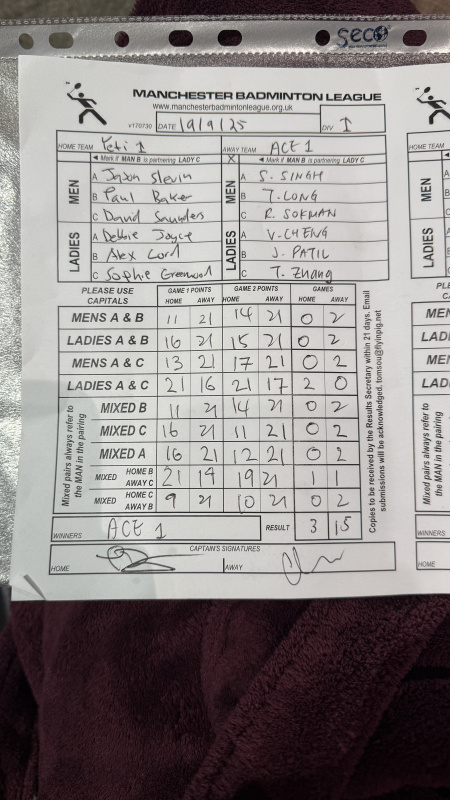 seco
MANCHESTER BADMINTON LEAGUE
www.manchesterbadmintonleague.org.uk
v170730 DATE 19/9/25 DIV 1
HOME TEAM Yeti 1 AWAY TEAM ACE 1
◄ Mark if MAN B is partnering LADY C X ◄ Mark if MAN B is partnering LADY C
MEN A Jason Slevin MEN A S. SINGH
B Paul Baker B T. LONG
C David Saunders C R. SOKMAN
LADIES A Debbie Joyce LADIES A V. CHENG
B Alex Cord B J. PATIL
C Sophie Greenwood C T. Zhang
PLEASE USE CAPITALS GAME 1 POINTS GAME 2 POINTS GAMES
HOME AWAY HOME AWAY HOME AWAY
MENS A & B 11 21 14 21 0 2
LADIES A & B 16 21 15 21 0 2
MENS A & C 13 21 17 21 0 2
LADIES A & C 21 16 21 17 2 0
Mixed pairs always refer to the MAN in the pairing
MIXED B 11 21 14 21 0 2
MIXED C 16 21 11 21 0 2
MIXED A 16 21 12 21 0 2
MIXED HOME B AWAY C 21 19 19 21 1 1
MIXED HOME C AWAY B 9 21 10 21 0 2
WINNERS ACE 1 RESULT 3 15
CAPTAIN'S SIGNATURES
HOME AWAY
Copies to be received by the Results Secretary within 21 days. Email submissions will be acknowledged. tomsou@flympig.net
MEN
A
B
C
LADIES
A
B
C
HOME
MENS
LADI
MEN
LADI
Mixed pairs always refer to the MAN in the pairing
WINNERS
HOME